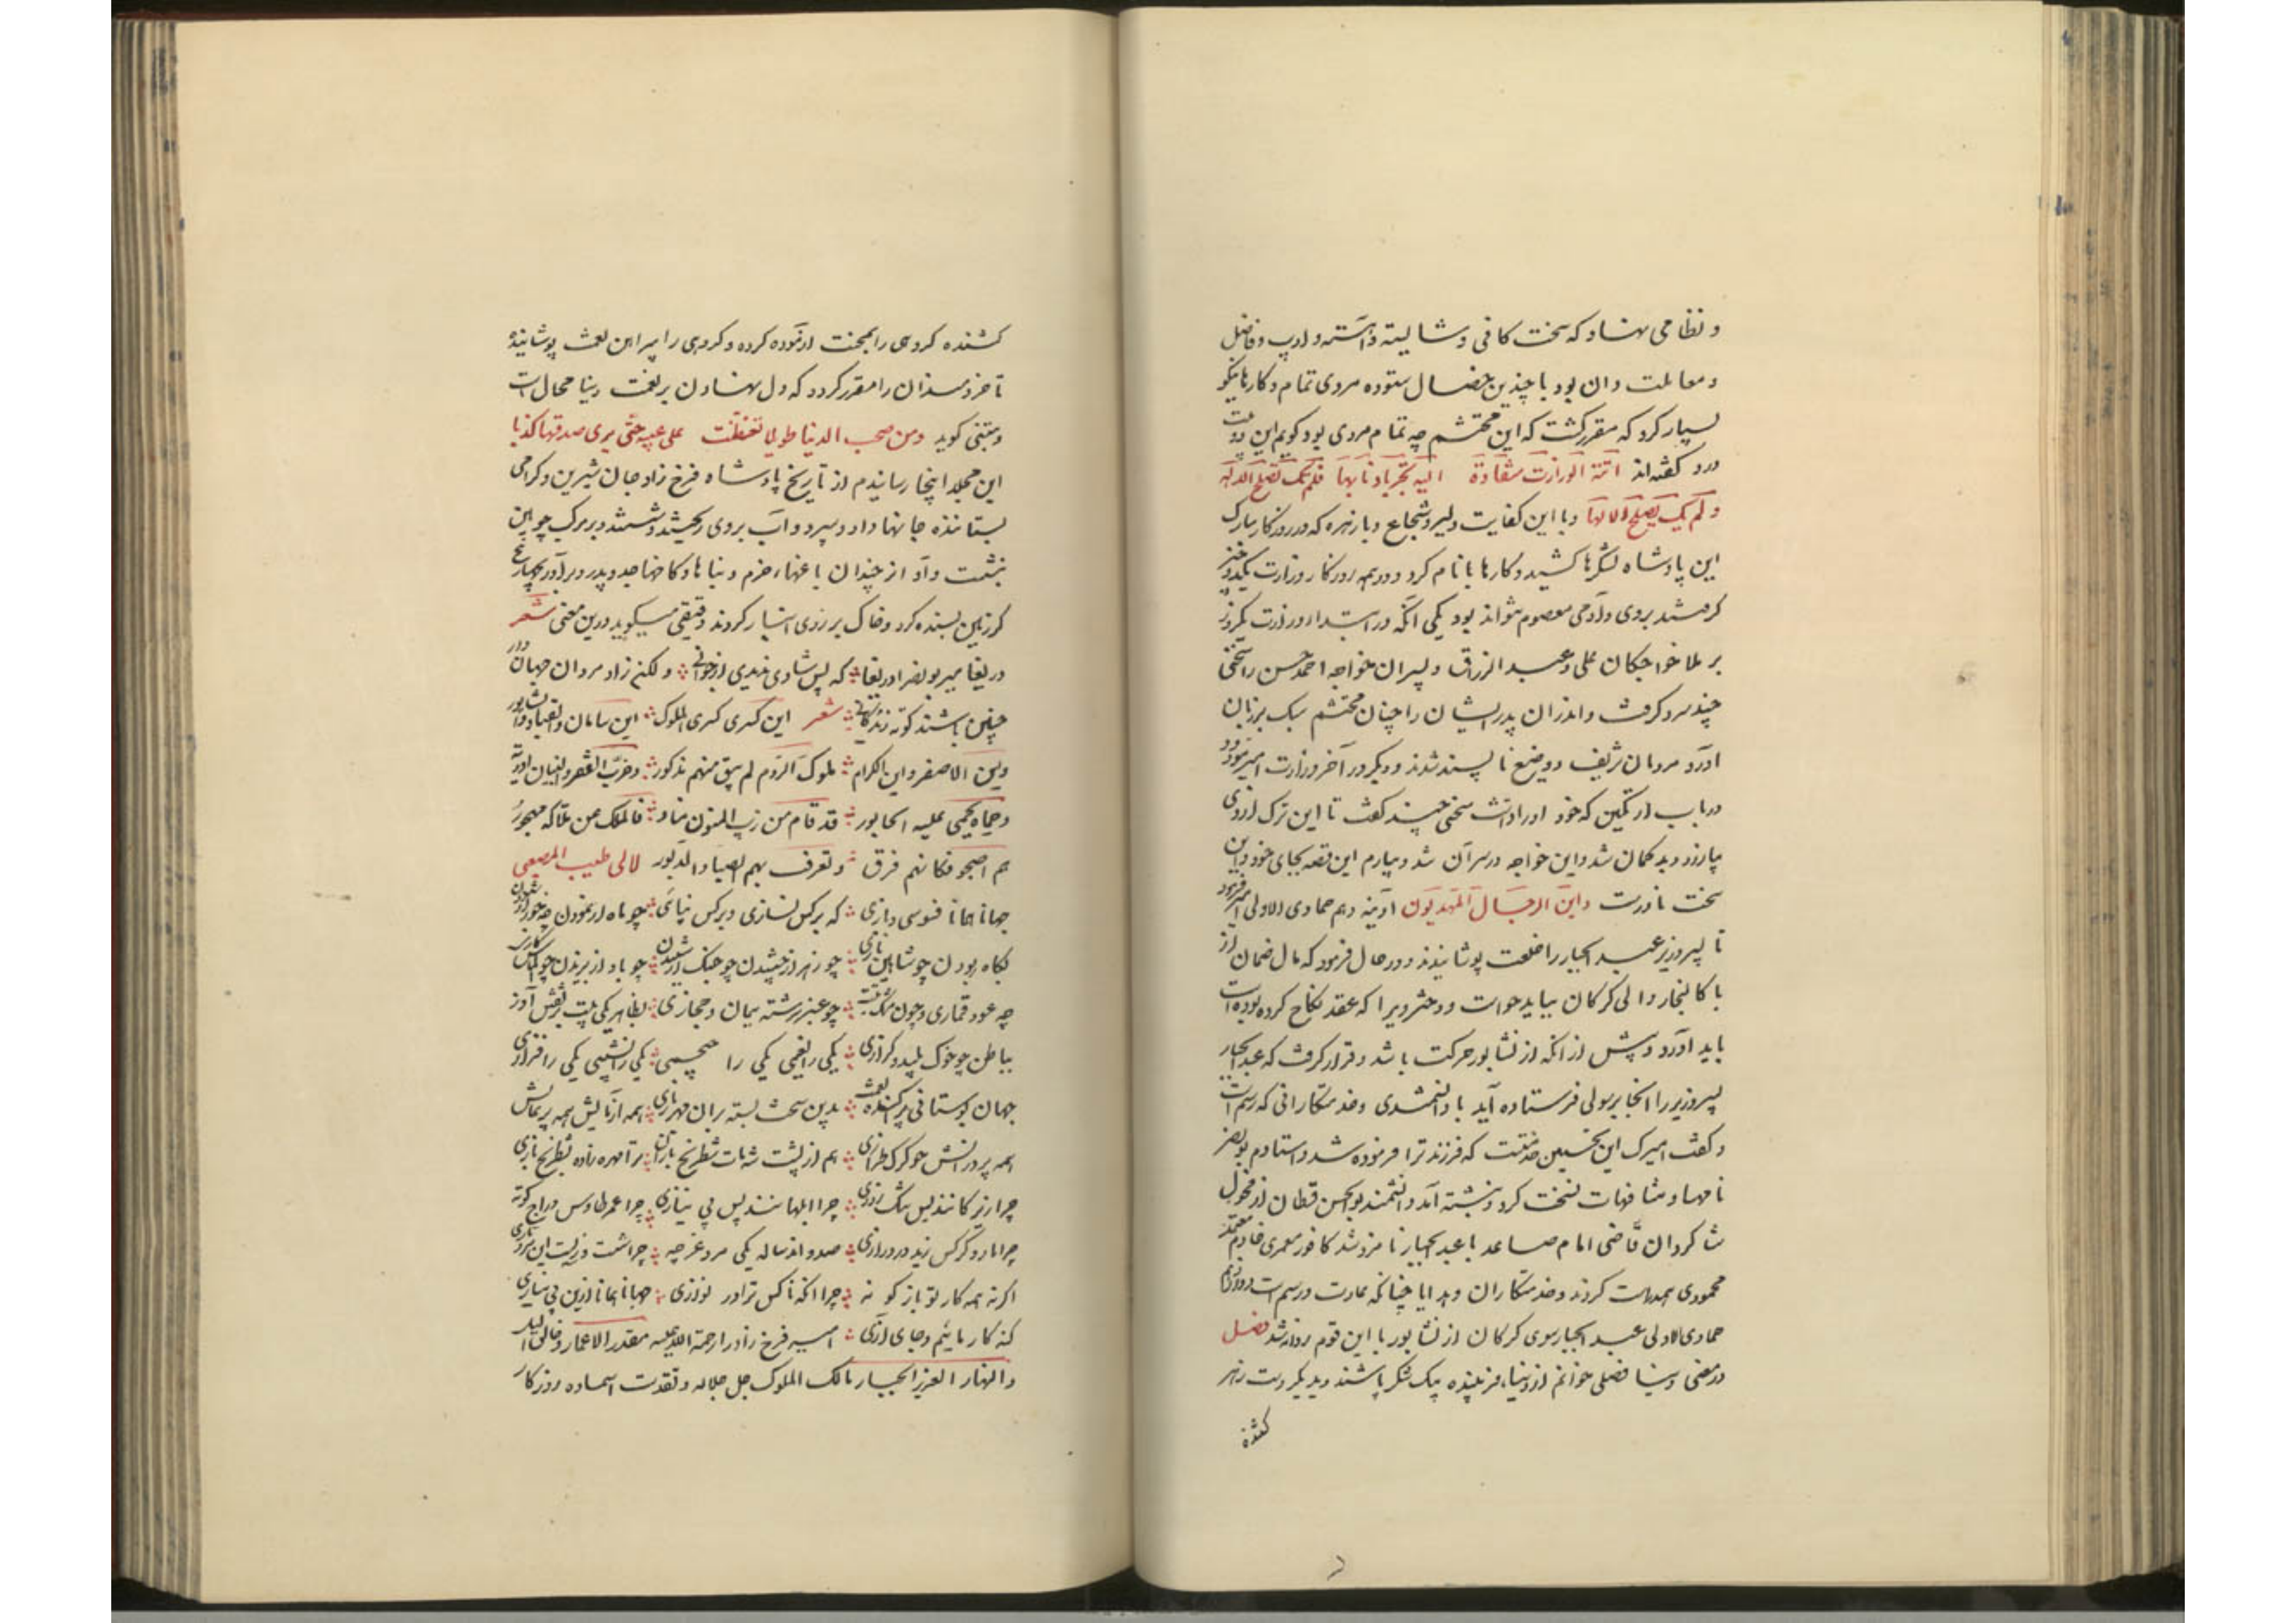 و نظامی نهاد که سخت کافی و شایسته و آهسته و ادیب و فاضل
و معاملت دان بود با چندین خصال ستوده مردی تمام و کارها نیکو
بسیار کرد که مقرر گشت که این محتشم چه تمام مردی بود گویم این دو بیت
درو گفته‌اند اتته الوزارت منقادة الیه تجرر اذیالها فلم تک تصلح الا له
و لم یک یصلح الا لها و با این کفایت دلیر و شجاع و با زهره که در روزگار مبارک
این پادشاه لشکرها کشید و کارها با نام کرد و در همه روزگار وزارت یک دو چیز
گرفتند بروی و آدمی معصوم نتواند بود یکی آنکه در ابتداء وزارت یکروز
بر ملا خواجگان علی و عبد الرزاق و پسران خواجه احمد حسن را سخنی
چند سرد گرفت و اندران پدر ایشان را چنان محتشم سبک بر زبان
آورد مردمان شریف و وضیع نا پسند شدند و دیگر در آخر وزارت امیر مودود
در باب ارتکین که خود او را داشت سخنی چند گفت تا این ترک ازوی
بیازرد و بد گمان شد و این خواجه در سر آن شد و بیارم این قصه بجای خود و این
سخت نادرست و این الرجال المهذبون آدینه دهم جمادی الاولی امیر فرمود
تا پسر وزیر عبد الجبار را خلعت پوشانیدند و در حال فرمود که مال ضمان از
با کالنجار والی گرگان بباید خواست و دختر ویرا که عقد نکاح کرده بوده است
باید آورد و پیش از آنکه از نشابور حرکت باشد و قرار گرفت که عبد الجبار
پسر وزیر را آنجا برسولی فرستاده آید با دانشمندی و خدمتکارانی که رسم است
و گفت امیرک این نخستین خدمتست که فرزند ترا فرموده شد و استادم بونصر
نامها و مشافهات نسخت کرد و نبشته آمد دانشمند بوالحسن قطان از فحول
شاگردان قاضی امام صاعد با عبد الجبار نامزد شد کافور معمری خادم معتمد
محمودی همراه است کردند و خدمتکاران و هدایا چنانکه عادت و رسم است دوازدهم
جمادی الاولی عبد الجبار سوی گرگان از نشابور با این قوم روانه شد فصل
در معنی دنیا فصلی خوانم از دنیاء فریبنده بیک شکر پاشند و بدیگر دست زهر
کشنده
کشنده گروهی را بمحنت آزموده کرده و گروهی را پیراهن نعمت پوشانیده
تا خردمندان را مقرر گردد که دل نهادن بر نعمت دنیا محال است
و متنبی گوید و من صحب الدنیا طویلا تغفلت علی عینه حتی یری صدقها کذبا
این مجلد اینجا رسانیدم از تاریخ پادشاه فرخ زاد جان شیرین و گرامی
بستاننده جانها داد و سپرد و آب بروی ریختند و شستند و بر مرکب چوبین
بنشست و او از چندان باغهاء خرم و بناها و کاخها جد و پدر و برادر بچهار پنج
گز زمین بسنده کرد و خاک بر روی انبار کردند دقیقی میگوید درین معنی شعر
دریغا میر بونصرا دریغا که بس شادی ندیدی از جوانی ولکن راد مردان جهان دار
چنین باشند کوته زندگانی شعر این کسری کسری الملوک این سامان و القباد و شابور
و بنی الاصفر و این الکرام ملوک الروم لم یبق منهم مذکور و خرب القصر و البنیان
و حیاه یجبی علیه الخابور قد قام من ریب المنون فالملک عن ملاکه مهجور
هم اصبحوا فکانهم فرق و تعرف بهم الصبا والدبور لابی طیب المصعبی
جهانا همانا فسوسی و بازی که بر کس نپائی و با کس نسازی چو ماه از نمودن چو خور از شنودن
بگاه ربودن چو شاهین و بازی چو زهر از چشیدن چو چنگ از شنیدن چو باد از بزیدن چو الماس گازی
چه عود قماری و چون مشک تبت چو عنبر سرشته یمان و حجازی بظاهر یکی بیت پر نقش آزر
بباطن چو خوک پلید و گرازی یکی را نعیمی یکی را جحیمی یکی را نشیبی یکی را فرازی
جهان بوستانی پراکنده نعمت بدین سخت بسته بران مهر بازی همه آزمایش همه پر نمایش
همه پر درایش چو گرگ طرازی هم از پشت شه مات شطرنج بازان ترا مهره زاده بشطرنج بازی
چرا زیرکانند بس تنگ روزی چرا ابلهانند بس بی نیازی چرا عمر طاوس و دراج کوته
چرا مار و کرکس زید در درازی صد و اند ساله یکی مرد غرچه چرا شصت و سه زیست این مرد تازی
اگر نه همه کار تو باژگونه چرا آنکه ناکس ترا در نوازی جهانا همانا ازین بی نیازی
گنه کار مائیم و جای آزی امیر فرخ زاد را رحمة الله علیه مقدر الاعمار و خالق اللیل
والنهار العزیز الجبار مالک الملوک جل جلاله و تقدست اسماءه روزگار